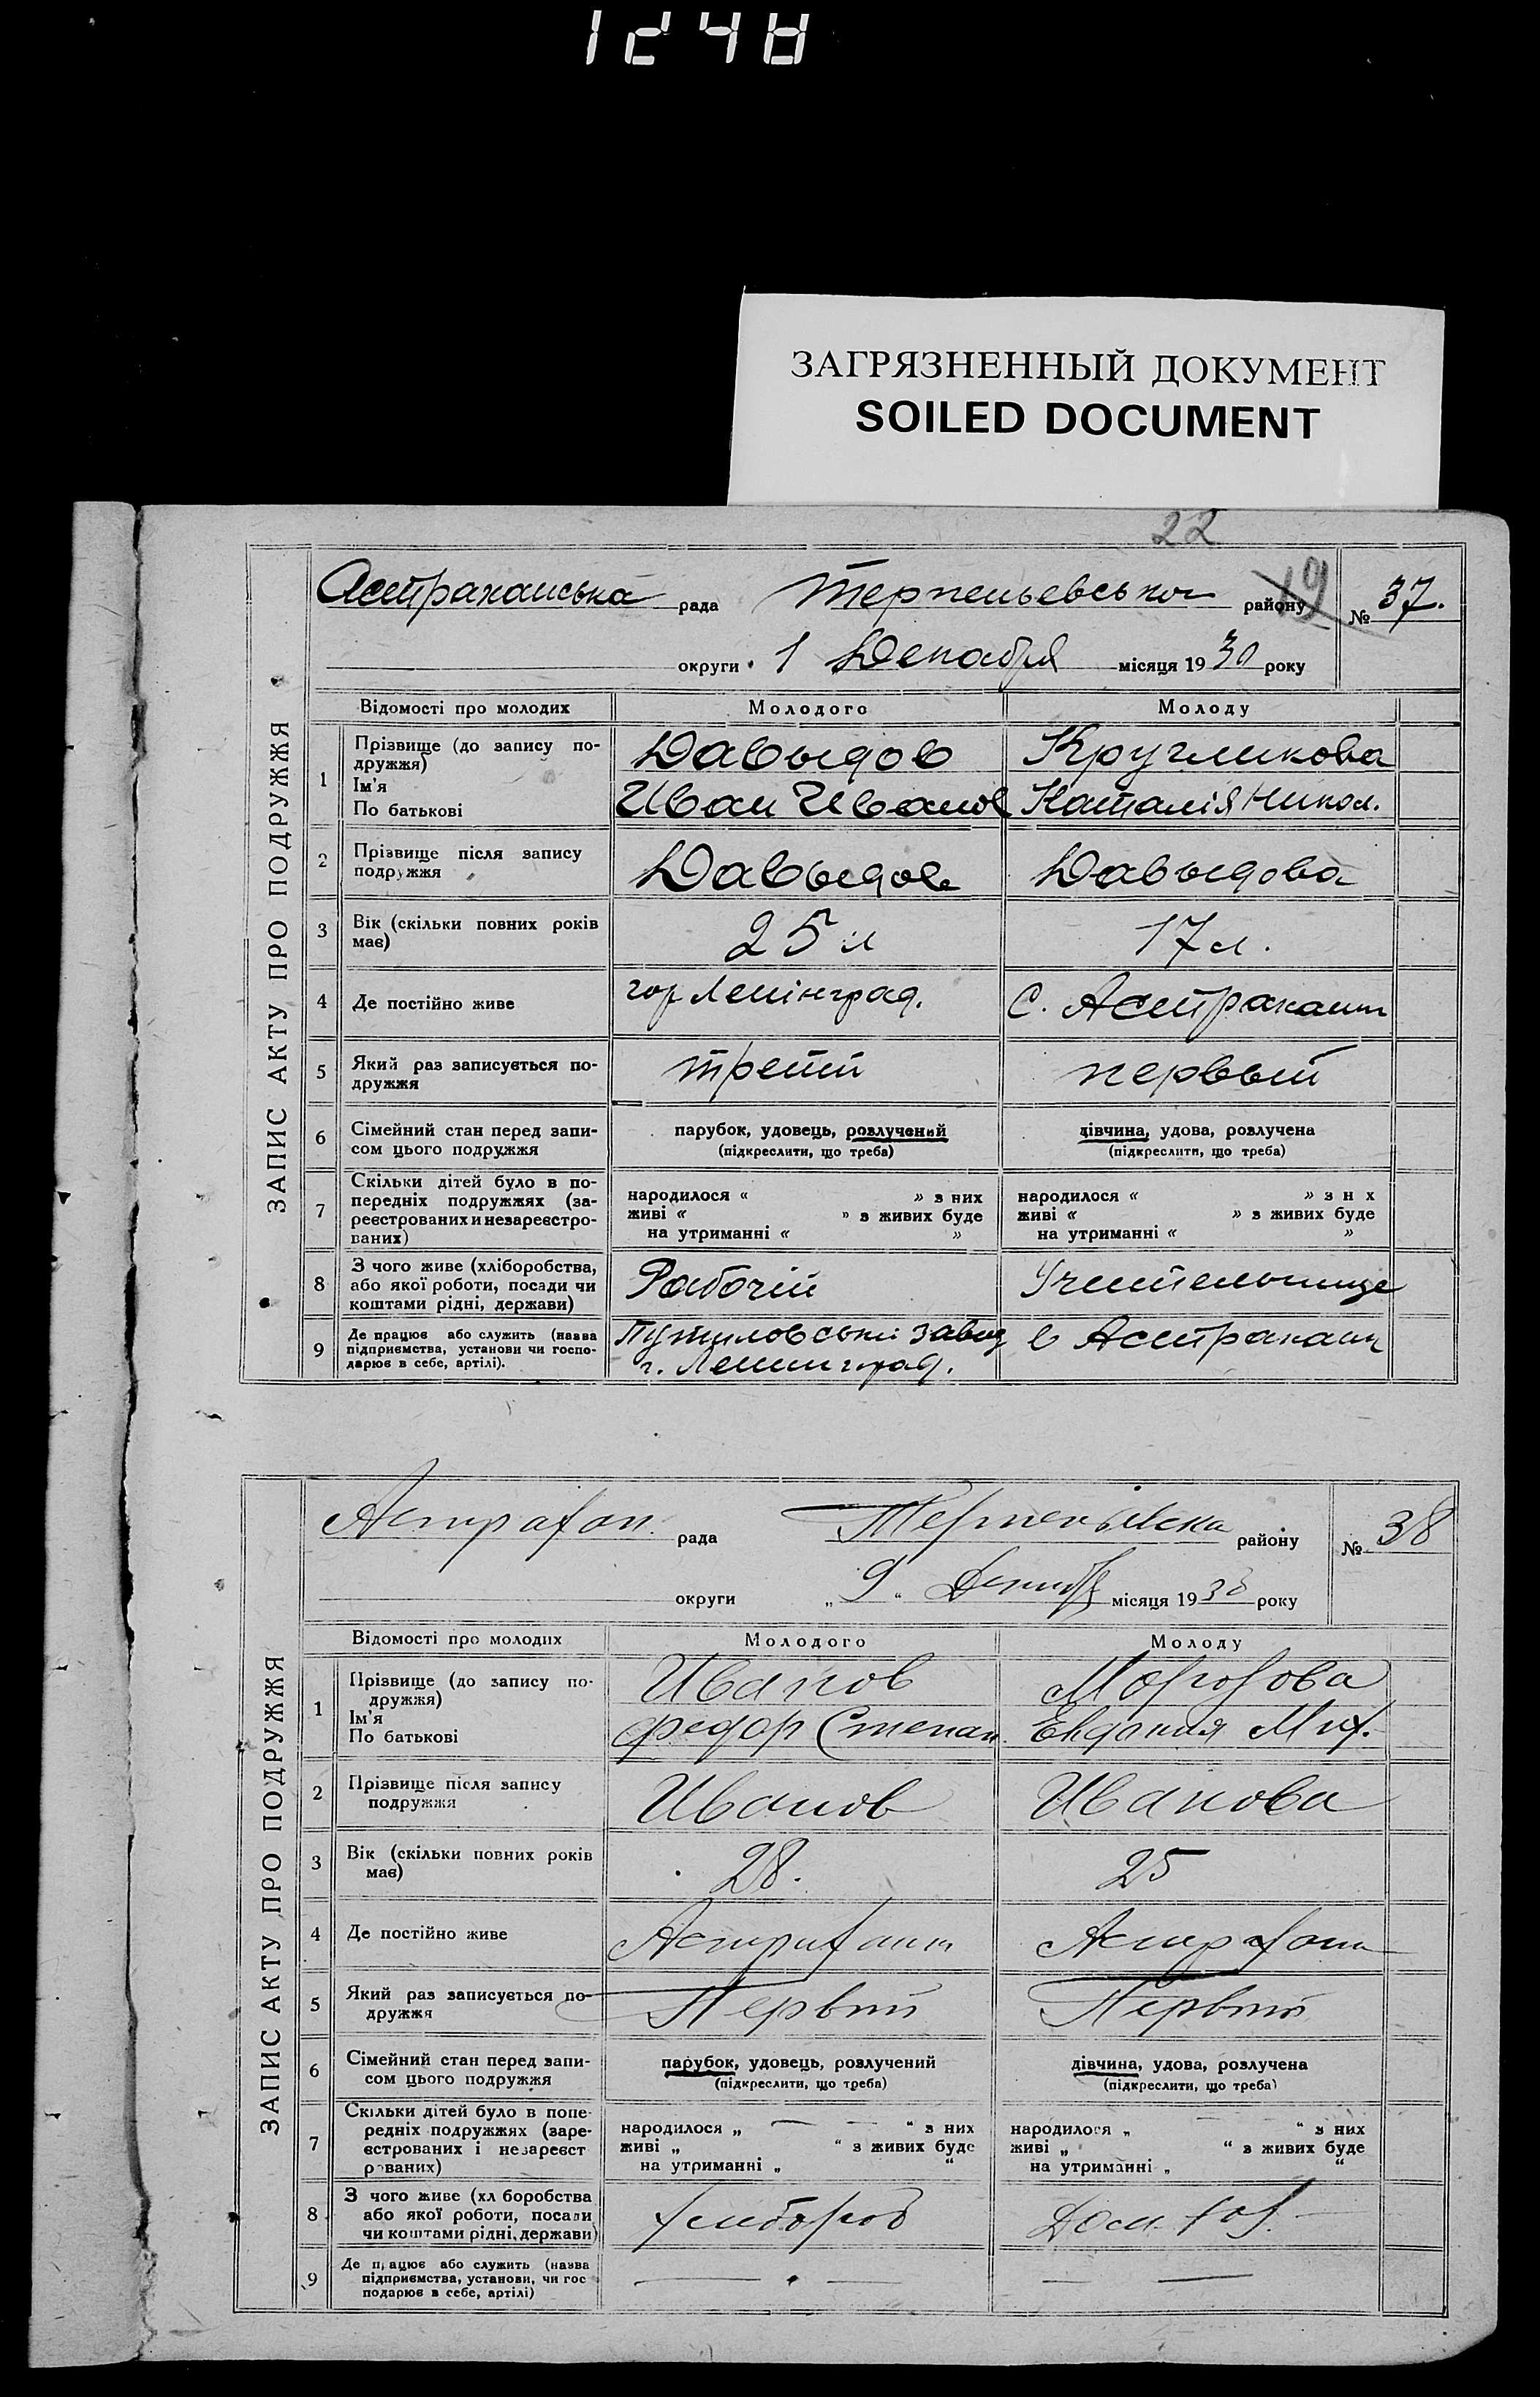 1248
ЗАГРЯЗНЕННЫЙ ДОКУМЕНТ
SOILED DOCUMENT
22
19
ЗАПИС АКТУ ПРО ПОДРУЖЖЯ
Астраханська рада Терпеньевського району № 37.
округи 1 Декабря місяця 1930 року
Відомості про молодих Молодого Молоду
1 Прізвище (до запису по-
дружжя) Давыдов Кругликова
Ім'я
По батькові Иван Иванов Наталія Никол.
2 Прізвище після запису
подружжя Давыдов Давыдова
3 Вік (скільки повних років
має) 25 л 17 л.
4 Де постійно живе гор Ленінград. С. Астрахани
5 Який раз записується по-
дружжя третий первый
6 Сімейний стан перед запи-
сом цього подружжя
парубок, удовець, розлучений
(підкреслити, що треба)
дівчина, удова, розлучена
(підкреслити, що треба)
7 Скільки дітей було в по-
передніх подружжях (за-
реєстрованих и незареєстро-
ваних)
народилося « » з них
живі « » з живих буде
на утриманні « »
народилося « » з н х
живі « » з живих буде
на утриманні « »
8 З чого живе (хліборобства,
або якої роботи, посади чи
коштами рідні, держави) Рабочій Учительница
9 Де працює або служить (назва
підприємства, установи чи госпо-
дарює в себе, артілі).
Путиловський завод
г. Ленинград.
в Астрахани
ЗАПИС АКТУ ПРО ПОДРУЖЖЯ
Астрахан. рада Терпеньівска району № 38
округи „ 9 “ Декаб місяця 1930 року
Відомості про молодих Молодого Молоду
1 Прізвище (до запису по-
дружжя) Иванов Морозова
Ім'я
По батькові Федор Степан Евдокия Мих.
2 Прізвище після запису
подружжя Иванов Иванова
3 Вік (скільки повних років
має) 28. 25
4 Де постійно живе Астрахани Астрахани
5 Який раз записується по-
дружжя Первый Первый
6 Сімейний стан перед запи-
сом цього подружжя
парубок, удовець, розлучений
(підкреслити, що треба)
дівчина, удова, розлучена
(підкреслити, що треба)
7 Скільки дітей було в попе-
редніх подружжях (заре-
єстрованих і незареєст
рованих)
народилося „ — — “ з них
живі „ “ з живих буде
на утриманні „ “
народилося „ “ з них
живі „ “ з живих буде
на утриманні „ “
8 З чого живе (хл боробства
або якої роботи, посади
чи коштами рідні, держави) Хлебороб Дом. хоз.
9 Де працює або служить (назва
підприємства, установи, чи гос
подарює в себе, артілі) — — — —